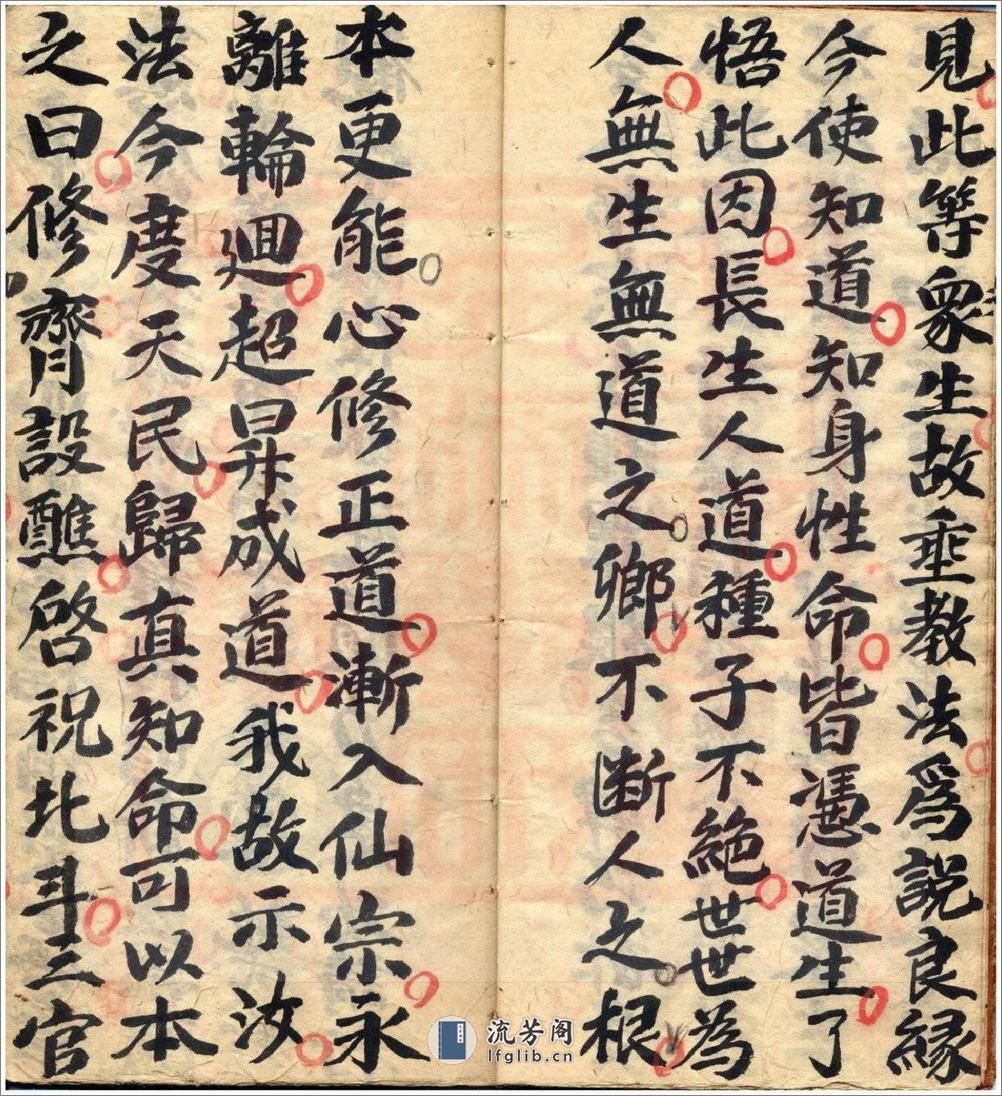 見此等衆生故垂教法爲説良縁
今使知道知身性命皆憑道生了
悟此因長生人道種子不絶世世為
人無生無道之鄉不断人之根
本更能心修正道漸入仙宗永
離輪廻超昇成道我故示汝
法今度天民歸真知命可以本
之日修齋設醮啓祝北斗三官
流芳阁
lfglib.cn